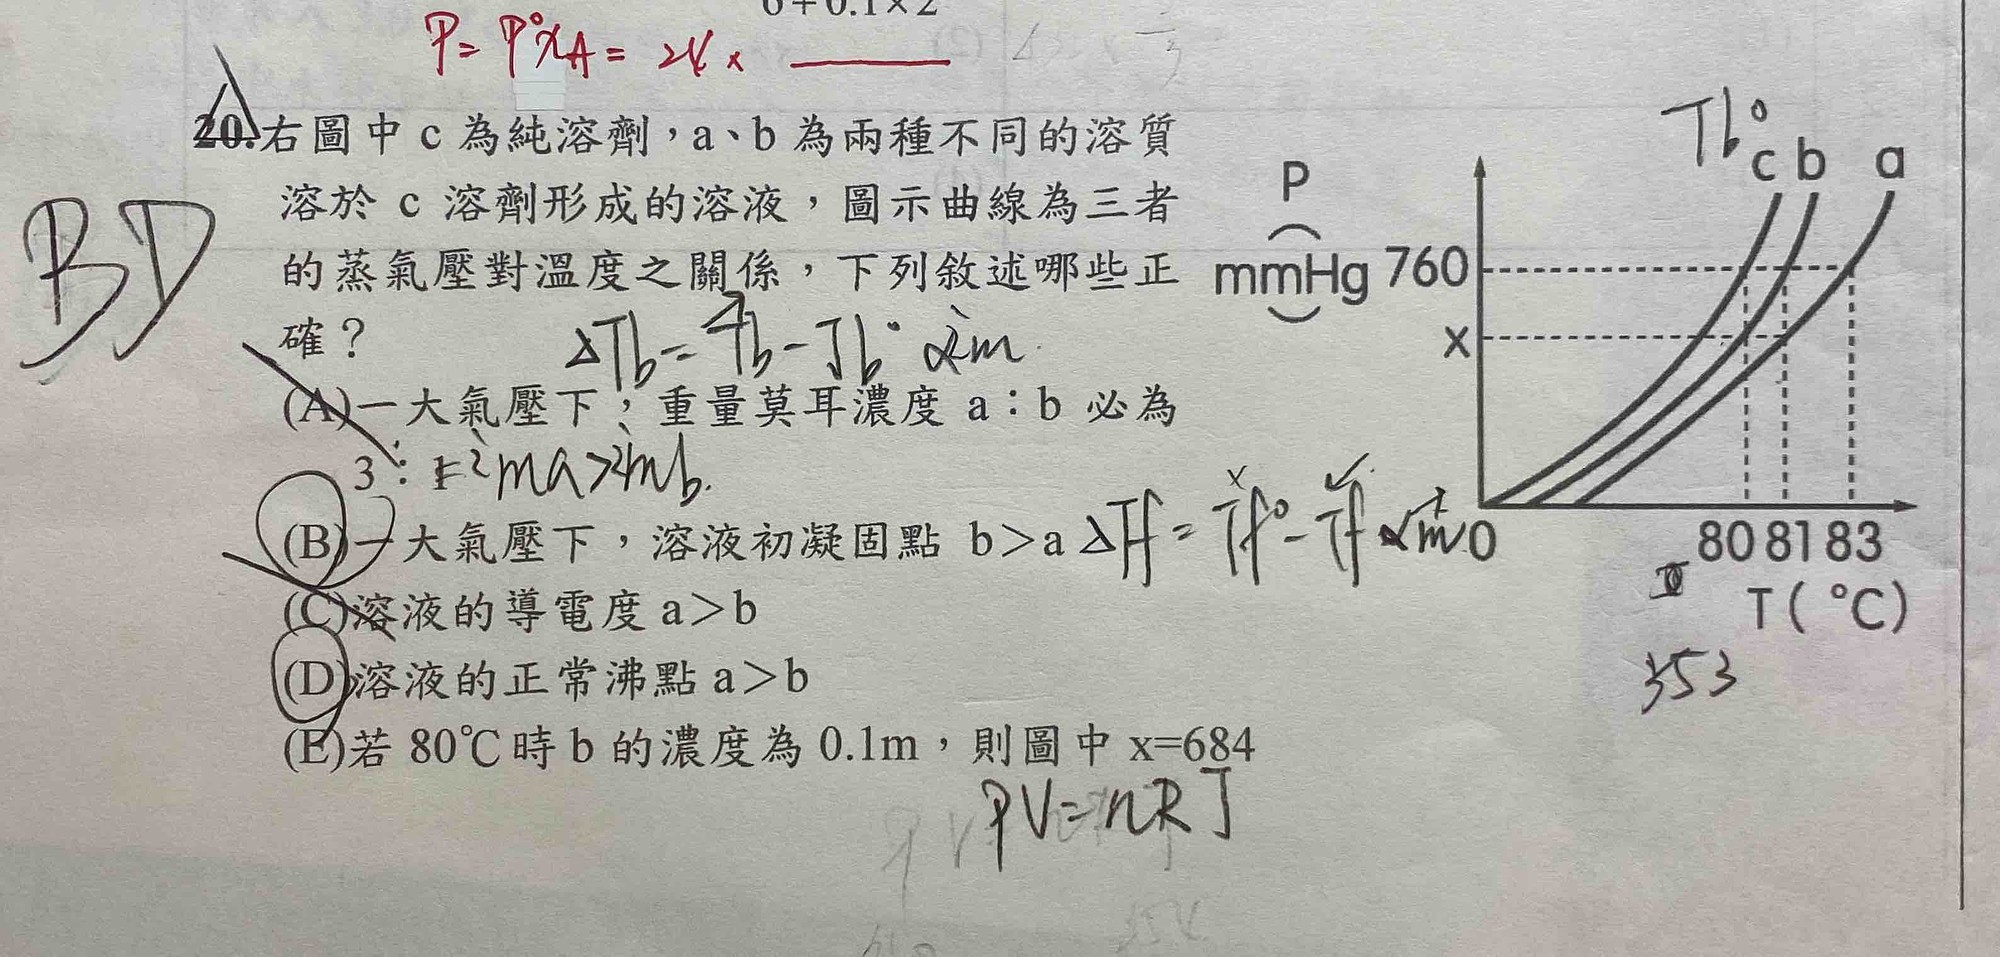 6+0.1×2
P = P°XA = 24 ×
20.右圖中 c 為純溶劑，a、b 為兩種不同的溶質
溶於 c 溶劑形成的溶液，圖示曲線為三者
的蒸氣壓對溫度之關係，下列敘述哪些正
確？
ΔTb = Tb - Tb° ∝ im
(A)一大氣壓下，重量莫耳濃度 a：b 必為
3：1
ima > imb.
(B)一大氣壓下，溶液初凝固點 b＞a
ΔTf = Tf° - Tf ∝ m
(C)溶液的導電度 a＞b
(D)溶液的正常沸點 a＞b
(E)若 80℃時 b 的濃度為 0.1m，則圖中 x=684
PV=nRT
BD
Tb°
c b a
P
(mmHg)
760
x
0
80 81 83
T( °C)
353